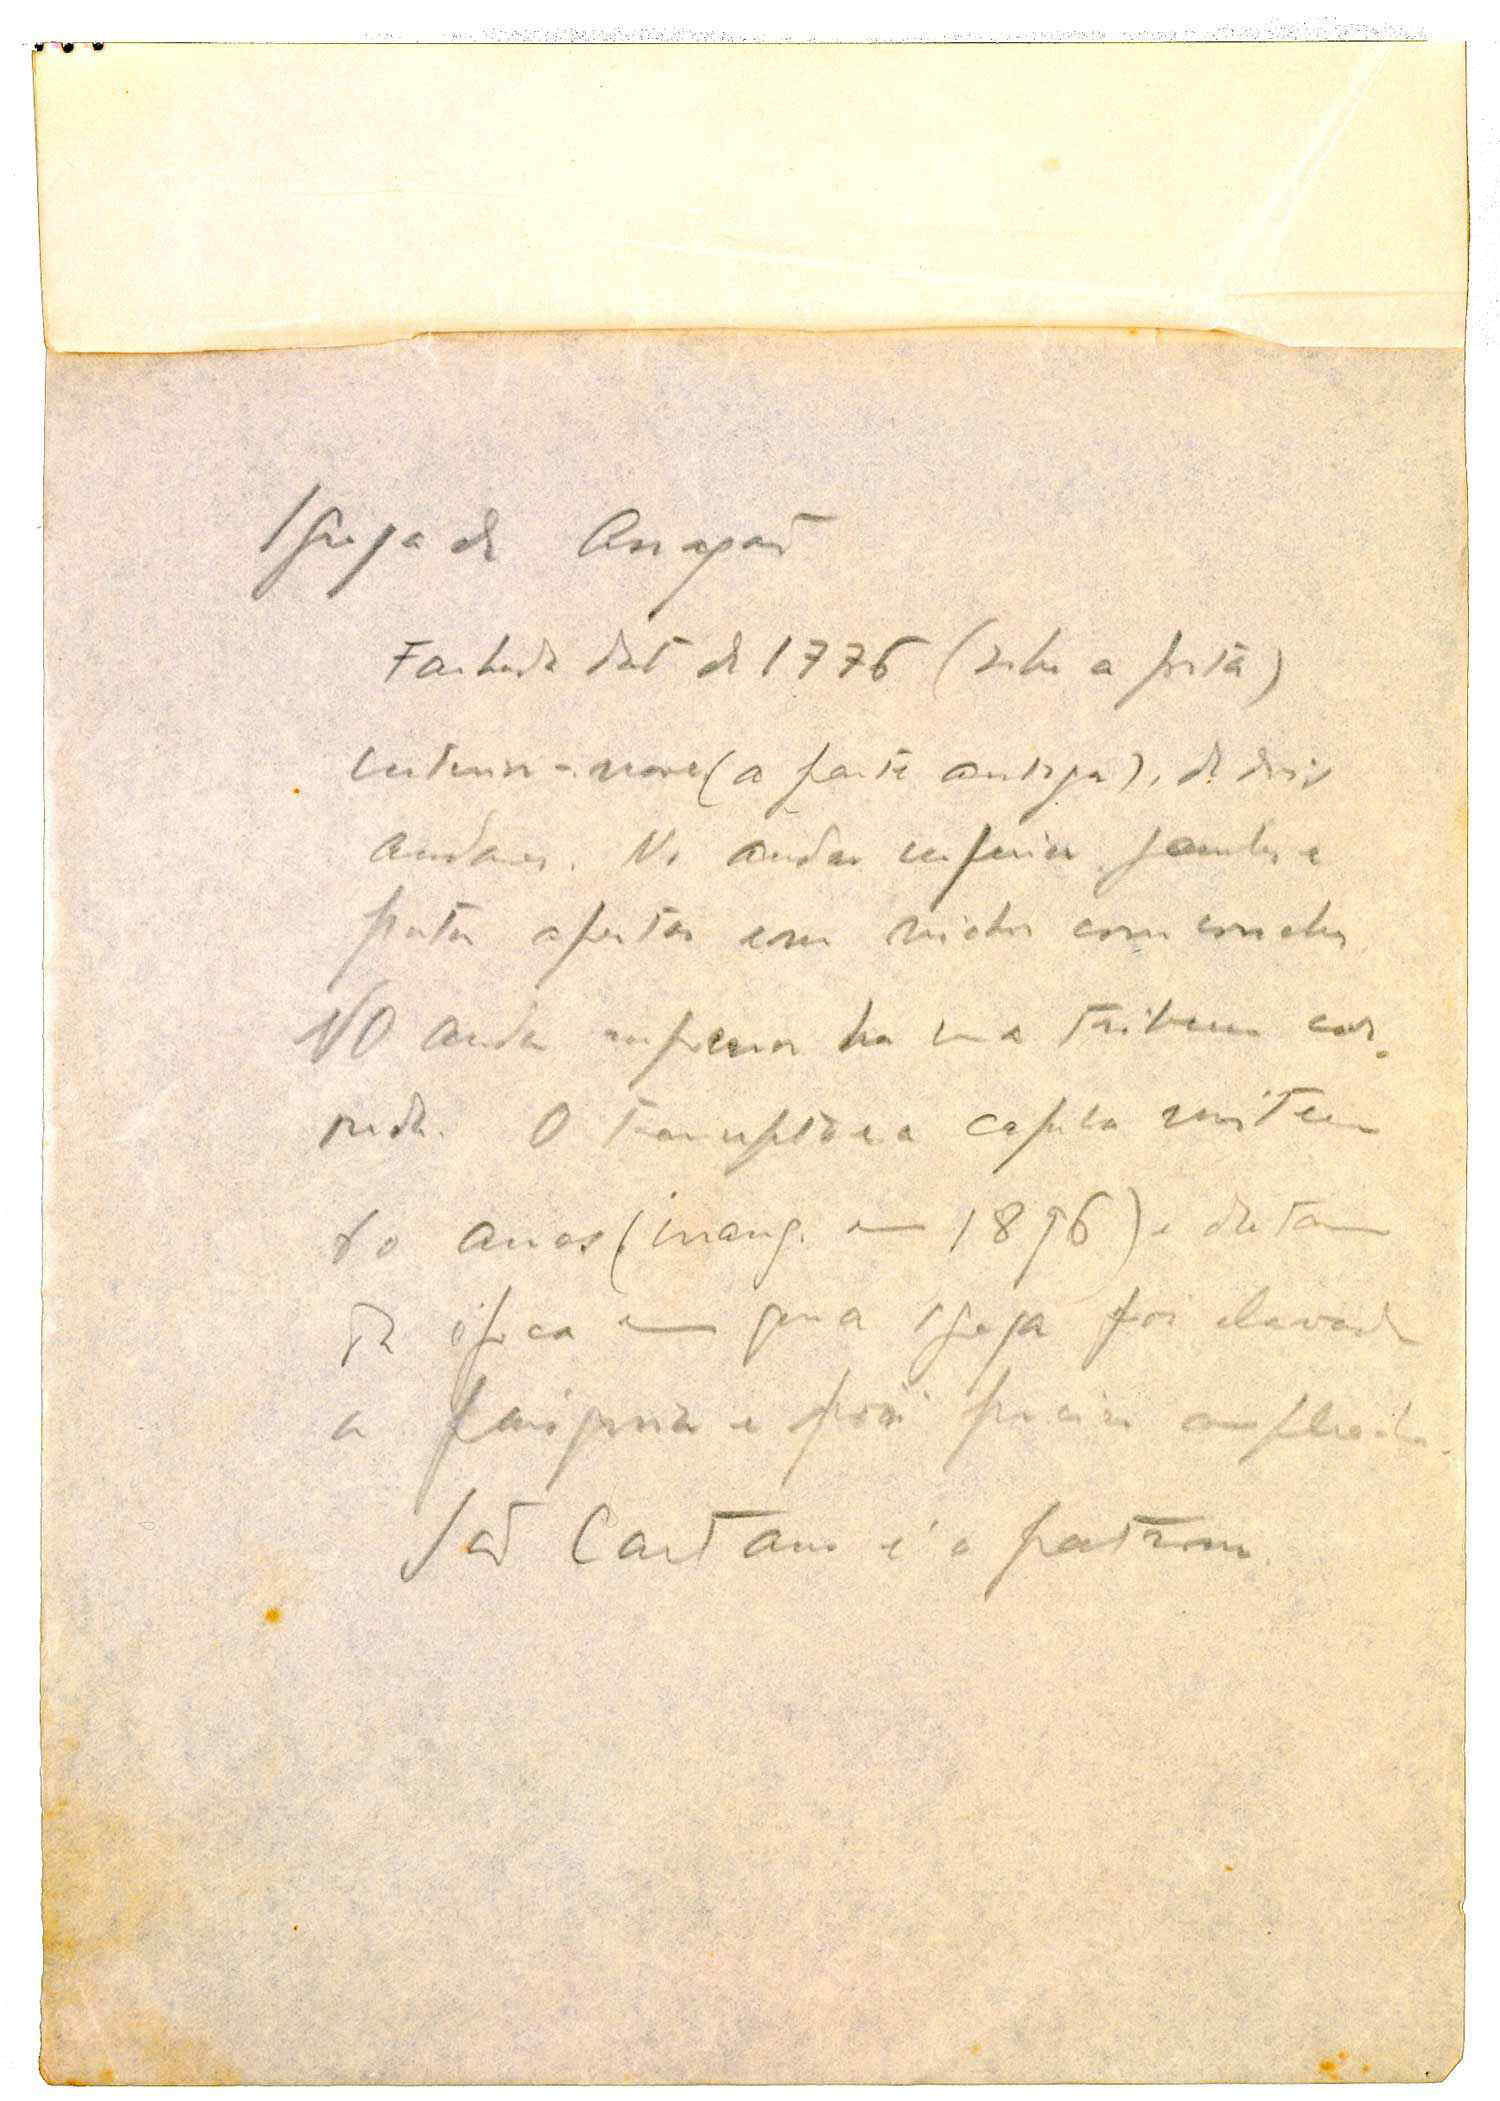 Igreja de Assagão
Fachada data de 1776 (sobre a porta)
Interior - nave (a parte antiga), de dois
andares. No andar inferior, janelas e
portas abertas com nichos com conchas.
NO andar superior ha uma tribuna cor-
rida. O transepto e a capela mor tem
60 anos (inaug. em 1896) e datam
da época em que a igreja foi elevada
a paróquia e foi preciso ampliada.
São Caetano é o patrono.